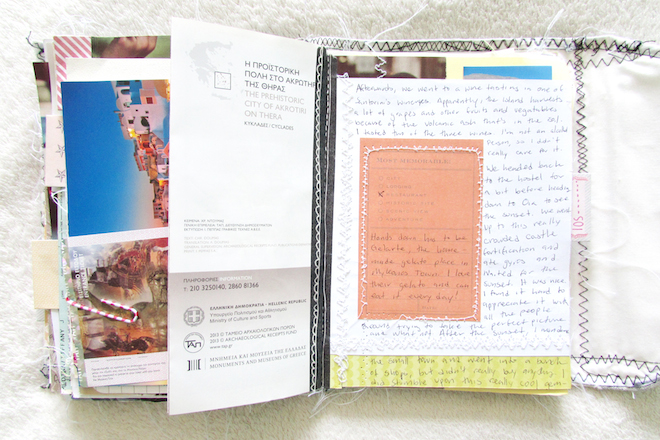 Η ΠΡΟΪΣΤΟΡΙΚΗ
ΠΟΛΗ ΣΤΟ ΑΚΡΩΤΗ
ΤΗΣ ΘΗΡΑΣ
THE PREHISTORIC
CITY OF AKROTIRI
ON THERA
ΚΥΚΛΑΔΕΣ / CYCLADES
ΠΛΗΡΟΦΟΡΙΕΣ INFORMATION
210 3250140, 2860 81366
ΕΛΛΗΝΙΚΗ ΔΗΜΟΚΡΑΤΙΑ - HELLENIC REPUBLIC
Υπουργείο Πολιτισμού και Αθλητισμού
Ministry of Culture and Sports
2013 © ΤΑΜΕΙΟ ΑΡΧΑΙΟΛΟΓΙΚΩΝ ΠΟΡΩΝ
2013 © ARCHAEOLOGICAL RECEIPTS FUND
www.tap.gr
ΤΑΠ
ΜΝΗΜΕΙΑ ΚΑΙ ΜΟΥΣΕΙΑ ΤΗΣ ΕΛΛΑΔΑΣ
MONUMENTS AND MUSEUMS OF GREECE
Afterwards, we went to a wine tasting in one of
Santorini's wineries. Apparently, the island harvests
a lot of grapes and other fruits and vegetables
because of the volcanic ash that's in the soil.
I hated two of the three wines. I'm not an alcohol
person, so I didn't
really care for it.
We headed back
to the hostel for
a bit before heading
down to Oia to see
the sunset. We went
up to this really
crowded castle
fortification and
waited for the
sunset. It was nice
I found it hard to
appreciate it with
all the people
MOST MEMORABLE
Hands down has to be
the home-
made gelato place in
Town! I love
their gelato and can
eat it every day!
trying to take the perfect picture
and what not. After the sunset, I
the small town and went into a bunch
of shops, but didn't really buy anything. I
did stumble upon this really cool
105